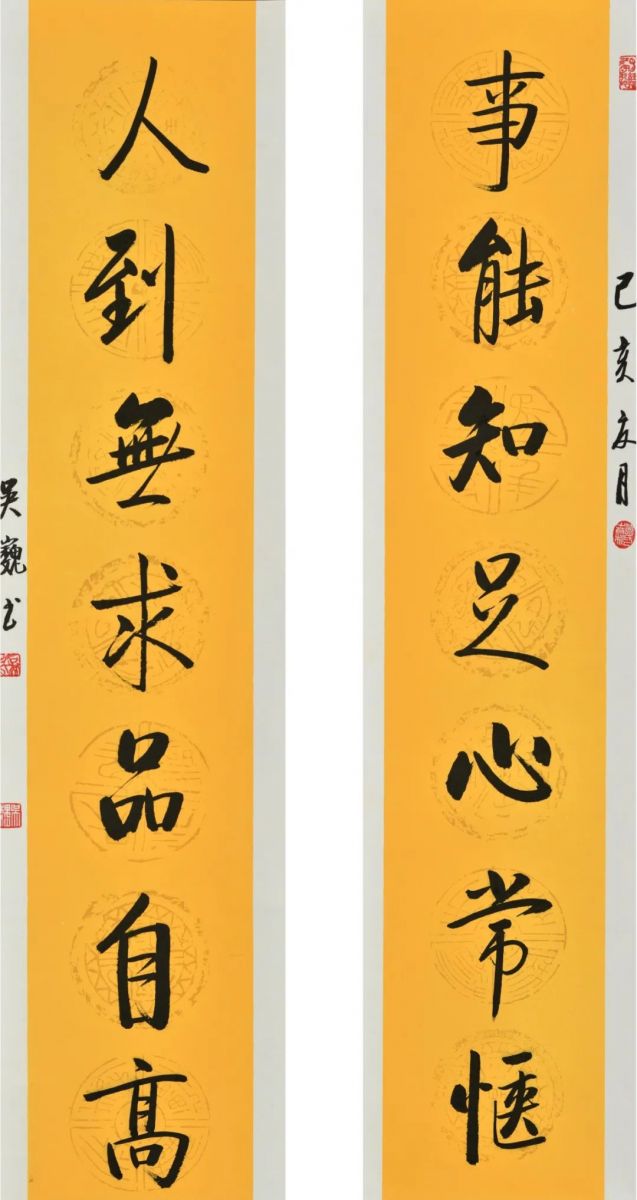 己亥夏月
事能知足心常惬
人到無求品自高
吴巍书